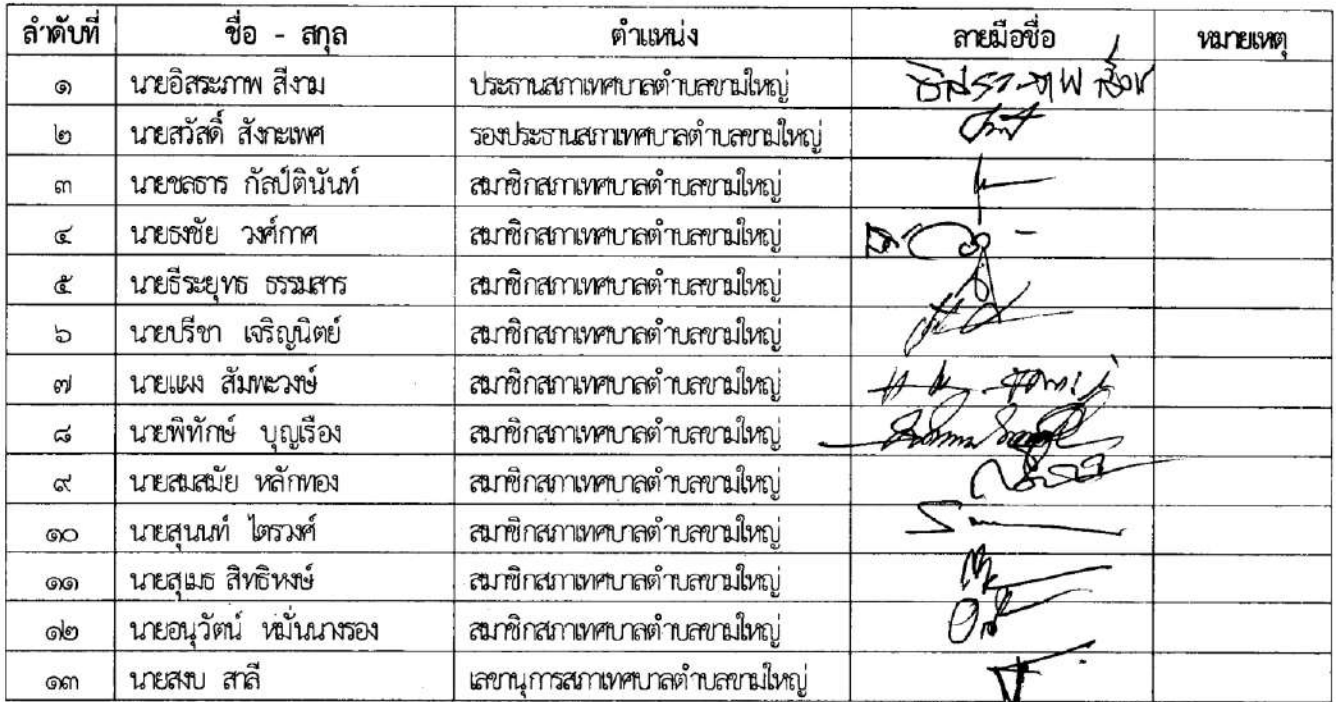 ลำดับที่ ชื่อ - สกุล ตำแหน่ง ลายมือชื่อ หมายเหตุ
๑ นายอิสระภาพ สีงาม ประธานสภาเทศบาลตำบลขามใหญ่
๒ นายสวัสดิ์ สังกะเพศ รองประธานสภาเทศบาลตำบลขามใหญ่
๓ นายชลธาร กัลป์ตินันท์ สมาชิกสภาเทศบาลตำบลขามใหญ่
๔ นายธงชัย วงศ์กาศ สมาชิกสภาเทศบาลตำบลขามใหญ่
๕ นายธีระยุทธ ธรรมสาร สมาชิกสภาเทศบาลตำบลขามใหญ่
๖ นายปรีชา เจริญนิตย์ สมาชิกสภาเทศบาลตำบลขามใหญ่
๗ นายแผง สัมพะวงษ์ สมาชิกสภาเทศบาลตำบลขามใหญ่
๘ นายพิทักษ์ บุญเรือง สมาชิกสภาเทศบาลตำบลขามใหญ่
๙ นายสมสมัย หลักทอง สมาชิกสภาเทศบาลตำบลขามใหญ่
๑๐ นายสุนนท์ ไตรวงศ์ สมาชิกสภาเทศบาลตำบลขามใหญ่
๑๑ นายสุเมธ สิทธิหงษ์ สมาชิกสภาเทศบาลตำบลขามใหญ่
๑๒ นายอนุวัตน์ หมั่นนางรอง สมาชิกสภาเทศบาลตำบลขามใหญ่
๑๓ นายสงบ สาลี เลขานุการสภาเทศบาลตำบลขามใหญ่